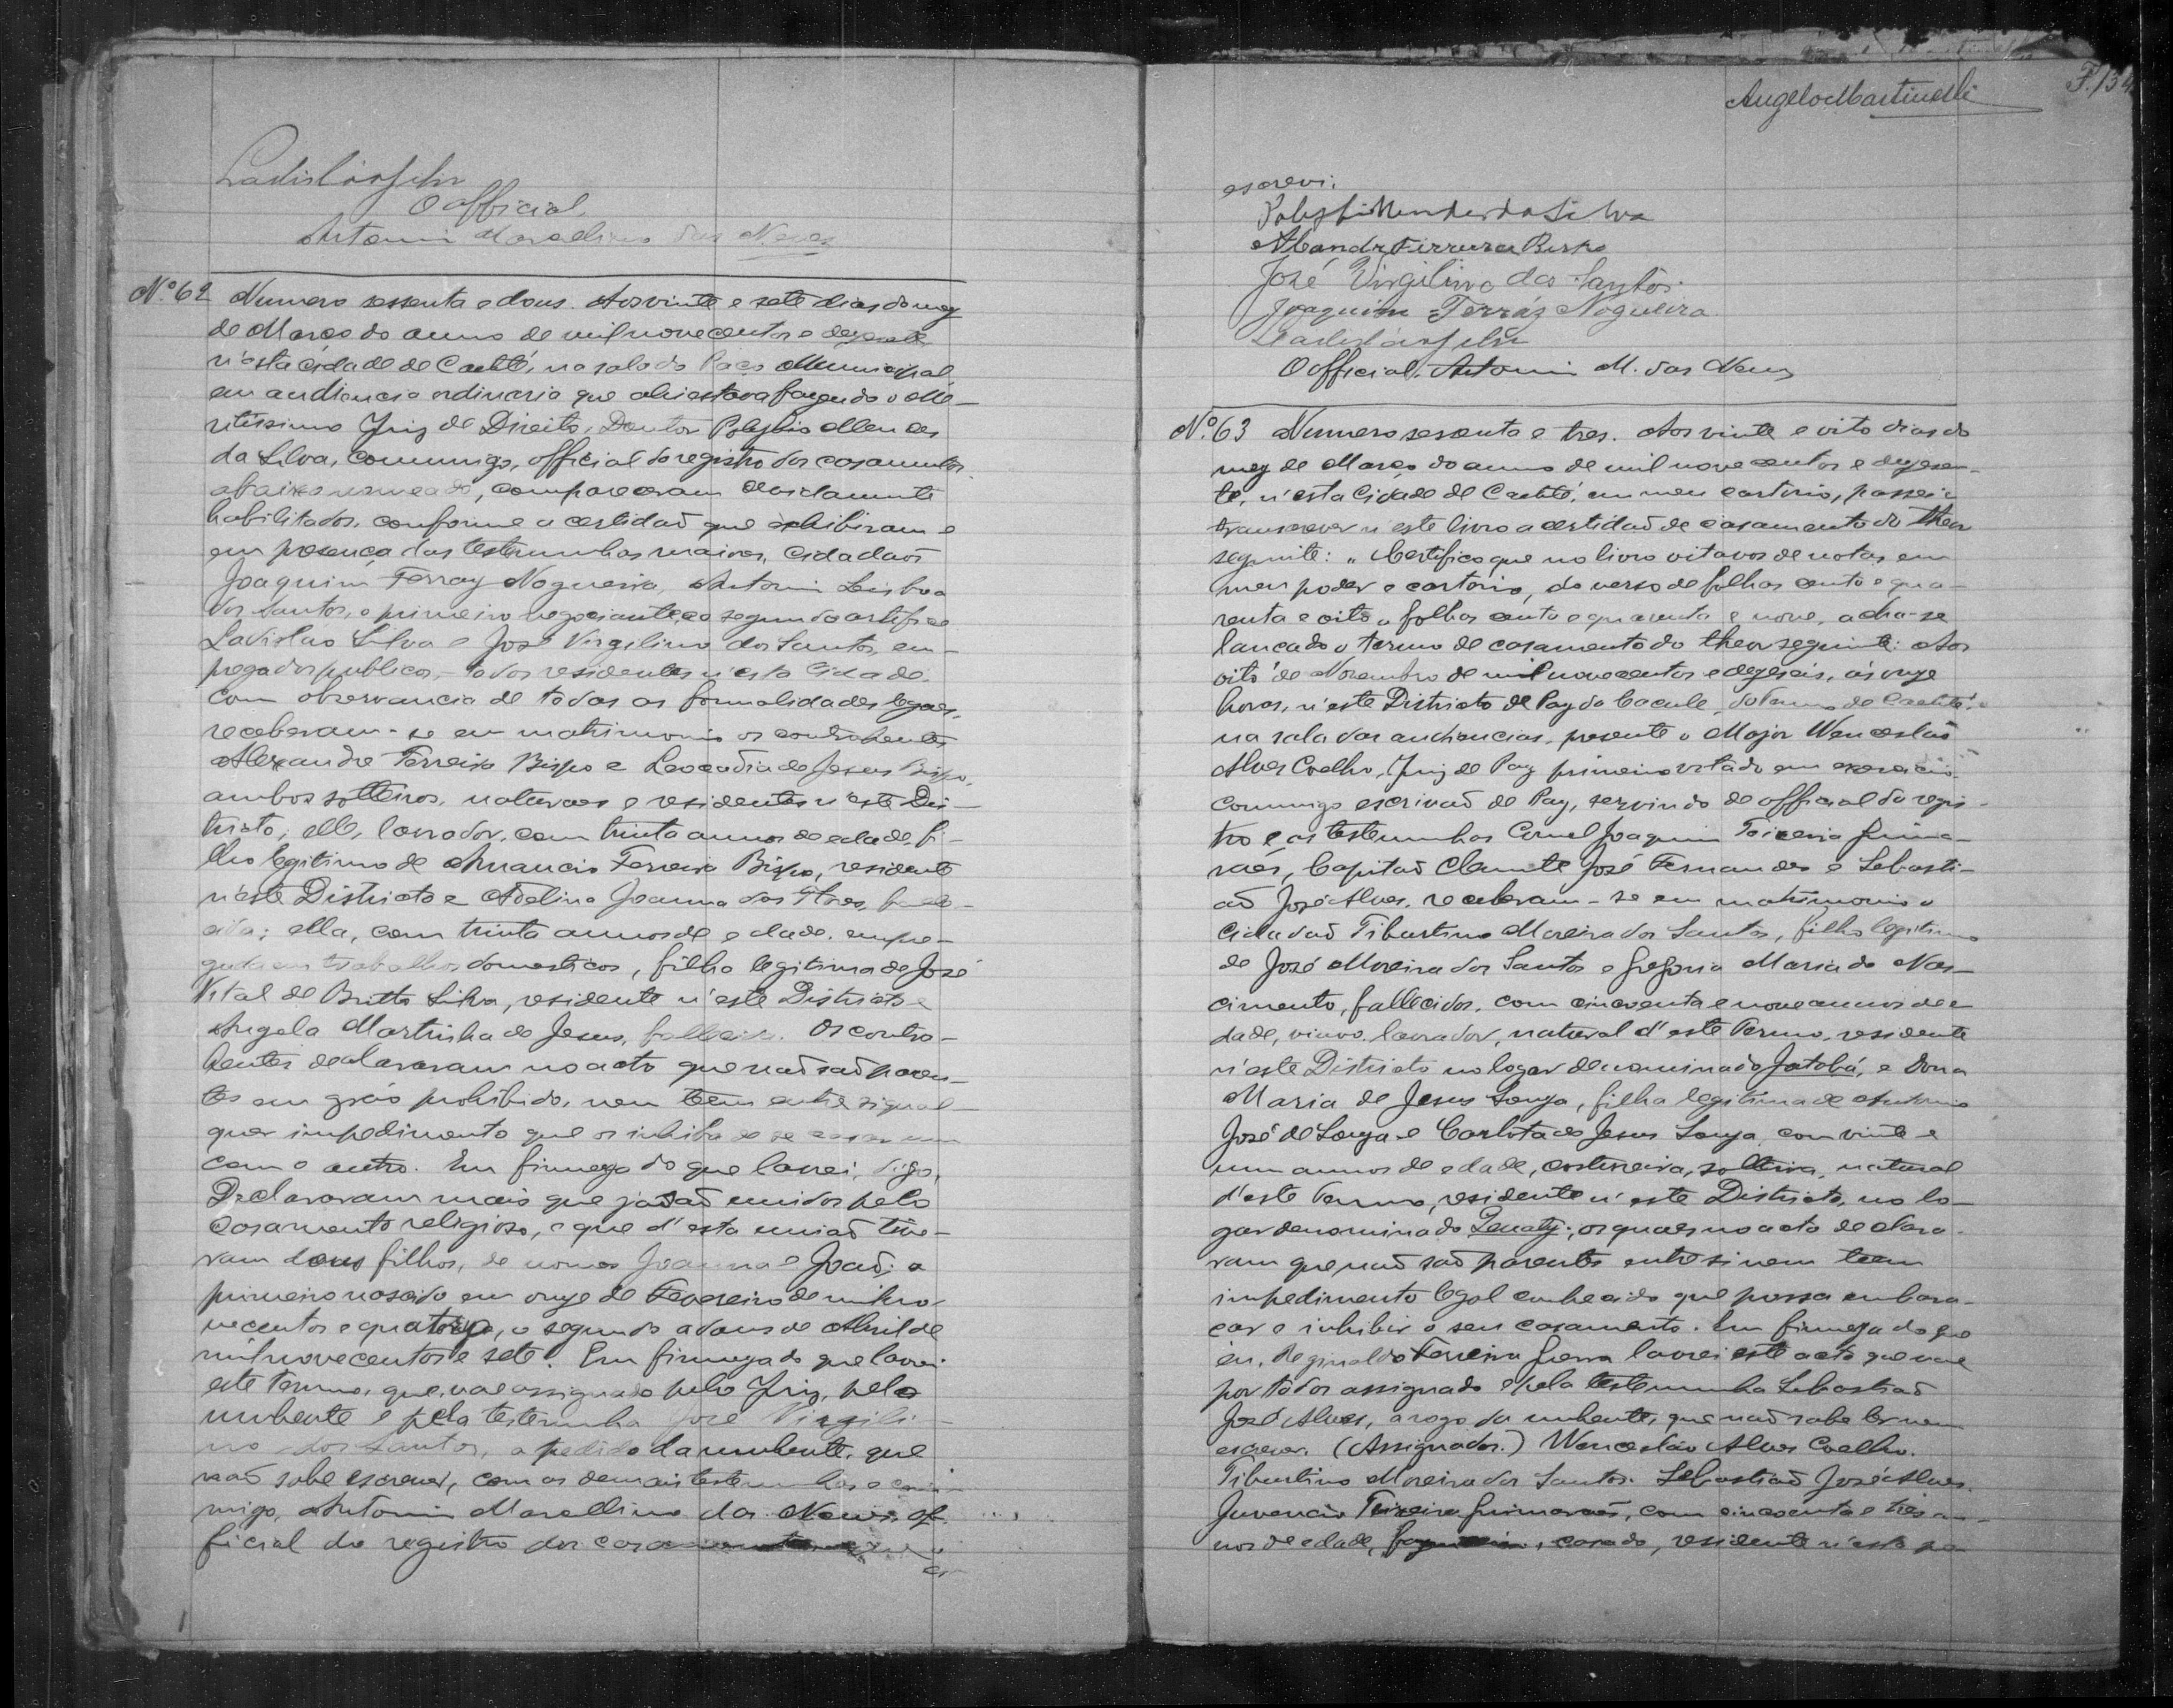 Ladisláo Silva
O official,
Antonio Marcellino das Neves
Nº 62 Numero sessenta e dous. Aos vinte e sete dias do mez
de Março do anno de mil novecentos e dezesete
n'esta cidade de Caetité, na sala do Paço Municipal
em audiencia ordinaria que ahi estava fazendo o Me-
ritissimo Juiz de Direito, Doutor Polybio Mendes
da Silva, commigo, official do registro dos casamentos
abaixo nomeado, compareceram devidamente
habilitados, conforme a certidaõ que exhibiram e
em presença das testemunhas maiores, cidadaõs
Joaquim Ferraz Nogueira, Antonio Lisboa
dos Santos, o primeiro negociante, e o segundo artifice
Ladislau Silva e José Virgilino dos Santos, em-
pregados publicos, todos residentes n'esta Cidade.
Com observancia de todas as formalidades legaes,
receberam-se em matrimonio os contrahentes
Alexandre Ferreira Bispo e Leocadia de Jesus Bispo,
ambos solteiros, naturaes e residentes n'este Dis-
tricto; elle, lavrador, com trinta annos de edade, fi-
lho legitimo de Amancio Ferreira Bispo, residente
n'este Districto e Adelina Joanna das Flores, falle-
cida; ella, com trinta annos de edade, empre-
gada em trabalhos domesticos, filha legitima de José
Vital de Britto Silva, residente n'este Districto e
Angela Martinha de Jesus, fallecida. Os contra-
hentes declararam no acto que naõ saõ paren-
tes em gráo prohibido, nem teem entre si qual-
quer impedimento que os inhiba de se casar um
com o outro. Em firmeza do que lavrei, digo,
Declararam mais que já saõ unidos pelo
casamento religioso, e que d'esta uniaõ tive-
ram dous filhos, de nomes Joanna e Joaõ; a
primeiro nascido em onze de Fevereiro de mil no-
vecentos e quatorze, o segundo a dous de Abril de
mil novecentos e sete. Em firmeza do que lavrei
este termo, que vae assignado pelo Juiz, pelo
nubente e pela testemunha José Virgili-
no dos Santos, a pedido da nubente, que
naõ sabe escrever, com as demais testemunhas e com-
migo, Antonio Marcellino das Neves, of-
ficial do registro dos
Angelo Martinelli
F. 134
escrevi.
Polybio Mendes da Silva
Alexandre Ferreira Bispo
José Virgilino dos Santos.
Joaquim Ferráz Nogueira
Ladisláo Silva
O official, Antonio M. das Neves
Nº 63 Numero sessenta e tres. Aos vinte e oito dias do
mez de Março do anno de mil novecentos e dezese-
te, n'esta Cidade de Caetité, em meu cartorio, passei a
transcrever n'este livro a certidaõ de casamento do theor
seguinte: "Certifico que no livro oitavo de notas, em
meu poder e cartorio, do verso de folhas cento e qua-
renta e oito a folhas cento e quarenta e nove, acha-se
lançado o termo de casamento do theor seguinte: Aos
oito de Novembro de mil novecentos e dezeseis, ás onze
horas, n'este Districto de Paz do Caculé, do Termo de Caetité,
na sala das audiencias, presente o Major Wenceslaõ
Alves Coelho, Juiz de Paz primeiro votado em exercicio,
commigo escrivaõ de Paz, servindo de official do regis-
tro e as testemunhas Cornel Joaquim Teixeira Guima-
raẽs, Capitaõ Clemente José Fernandes e Sebasti-
aõ José Alves, receberam-se em matrimonio o
Cidadaõ Tiburtino Moreira dos Santos, filho legitimo
de José Moreira dos Santos e Gregoria Maria do Nas-
cimento, fallecidos, com cincoenta e nove annos de e
dade, viuvo, lavrador, natural d'este Termo, residente
n'este Districto no logar denominado Jatobá, e Dona
Maria de Jesus Souza, filha legitima de Antonio
José de Souza e Carlota de Jesus Souza, com vinte e
um annos de edade, costureira, solteira, natural
d'este Termo, residente n'este Districto, no lo-
gar denominado; os quaes no acto declara-
ram que naõ saõ parentes entre si nem teem
impedimento legal conhecido que possa embara-
çar e inhibir o seu casamento. Em firmeza do que
eu, Reginaldo Ferreira Guerra lavrei este acto que vae
por todos assignado e pela testemunha Sebastiaõ
José Alves, a rogo da nubente, que naõ sabe ler nem
escrever. (Assignados.) Wenceslão Alves Coelho.
Tiburtino Moreira dos Santos. Sebastiaõ José Alves.
Juvencio Teixeira Guimaraẽs, com cincoenta e tres an-
nos de edade, casado, residente n'esta